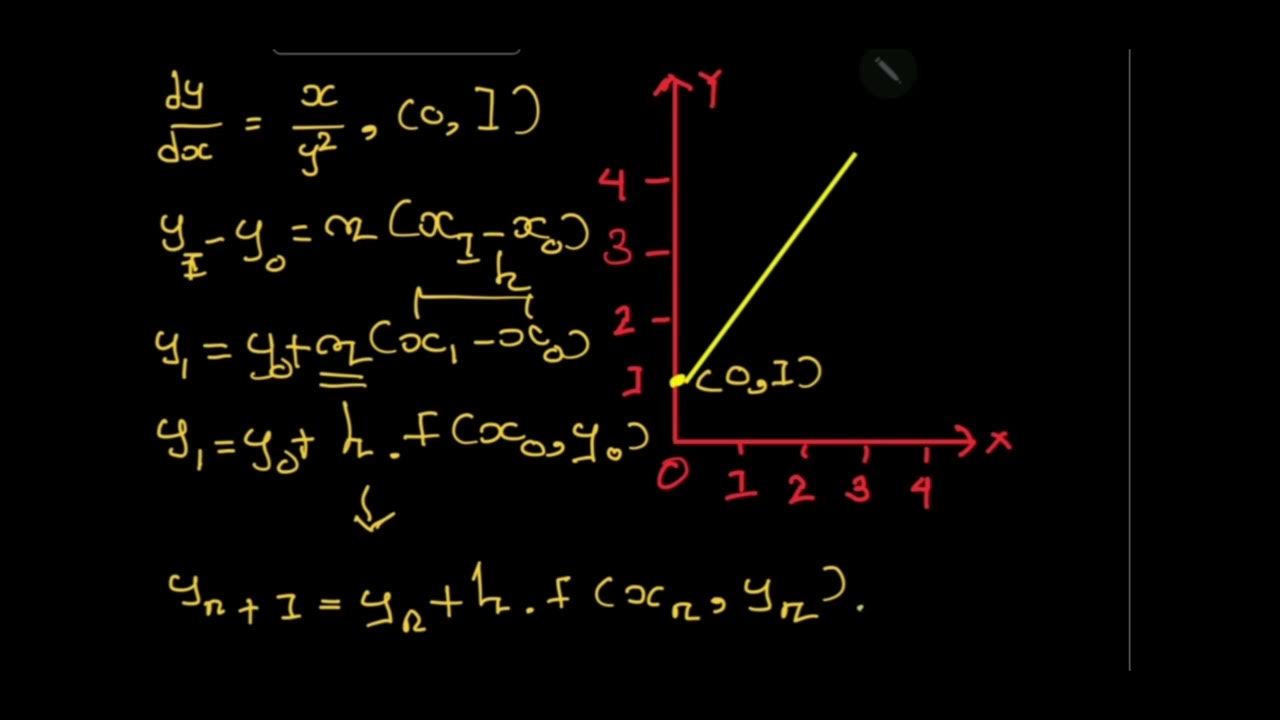 dy/dx = x/y², (0, 1)
y₁ - y₀ = m (x₁ - x₀)
h
y₁ = y₀ + m (x₁ - x₀)
y₁ = y₀ + h . f (x₀, y₀)
yₙ₊₁ = yₙ + h . f (xₙ, yₙ).
Y
4
3
2
1
(0, 1)
X
0 1 2 3 4